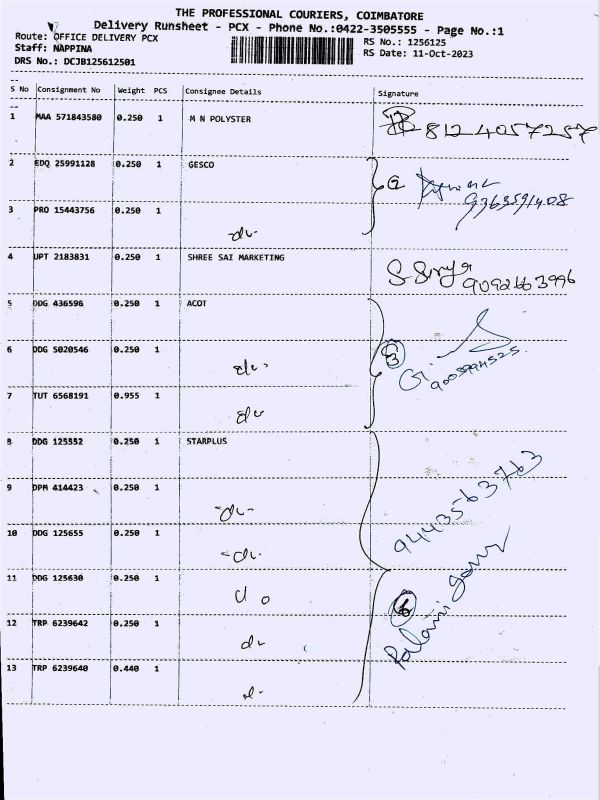 THE PROFESSIONAL COURIERS, COIMBATORE
Delivery Runsheet - PCX - Phone No.:0422-3505555 - Page No.:1
Route: OFFICE DELIVERY PCX
RS No.: 1256125
Staff: NAPPINA
RS Date: 11-Oct-2023
DRS No.: DCJB125612501
S No Consignment No Weight PCS Consignee Details Signature
1 MAA 571843580 0.250 1 M N POLYSTER 8124057257
2 EDQ 25991128 0.250 1 GESCO
9363591408
3 PRO 15443756 0.250 1
4 UPT 2183831 0.250 1 SHREE SAI MARKETING S. Surya 9092663996
5 DDG 436596 0.250 1 ACOT
6 DDG 5020546 0.250 1 3
7 TUT 6568191 0.955 1
8 DDG 125552 0.250 1 STARPLUS
9 DPM 414423 0.250 1
9443563763
10 DDG 125655 0.250 1
11 DDG 125630 0.250 1 do 6
12 TRP 6239642 0.250 1 Palani
13 TRP 6239640 0.440 1